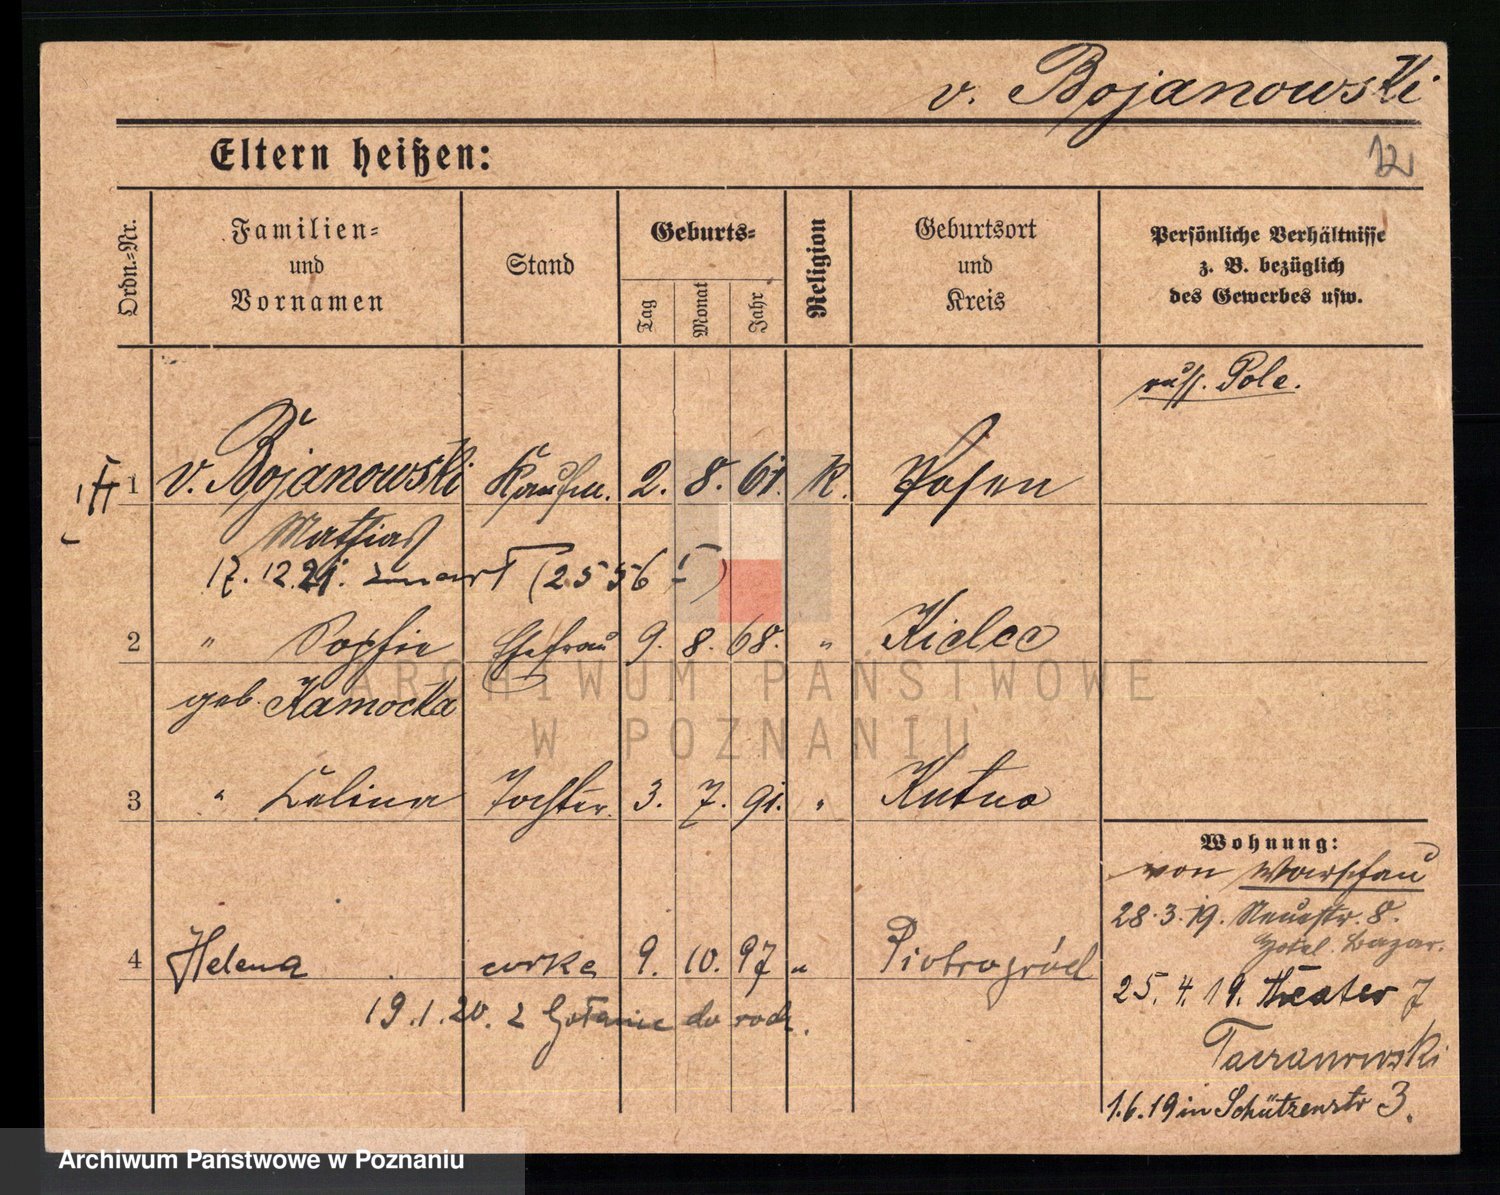 v. Bojanowski
12
Eltern heißen:
Ordn.-Nr.
Familien-
und
Vornamen
Stand
Geburts-
Tag
Monat
Jahr
Religion
Geburtsort
und
Kreis
Persönliche Verhältnisse
z. B. bezüglich
des Gewerbes usw.
russ. Pole.
1 v. Bojanowski Kaufm. 2. 8. 61. K. Posen
Mathias
17.12.21. zmarł (2556 I)
2 " Sophie Ehefrau 9. 8. 68. " Kielce
geb. Kamocka
3 " Celina Tochter 3. 7. 91. " Kutno
4 Helena corka 9. 10. 97 " Piotrogród
19.1.20. z do rodz.
Wohnung:
von Warschau
28.3.19. Neuestr. 8.
Hotel Bazar.
25.4.19. Theater 7
1.6.19 in Schützenstr 3.
ARCHIWUM PAŃSTWOWE
W POZNANIU
Archiwum Państwowe w Poznaniu